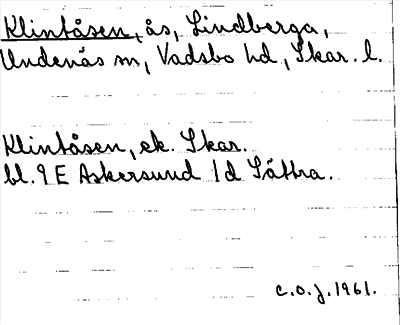 Klintåsen, ås, Lindberga,
Undenäs sn, Vadsbo hd, Skar. l.
Klintåsen, ek. Skar.
bl. 9 E Askersund 1d Sättra.
c.o.j. 1961.